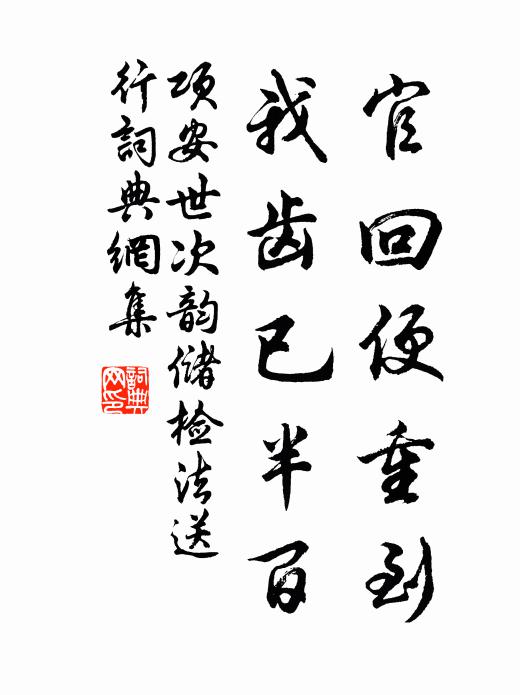 官回便重到
我齿已半百
项安世次韵储检法送
行詞典網集
詞典
网印